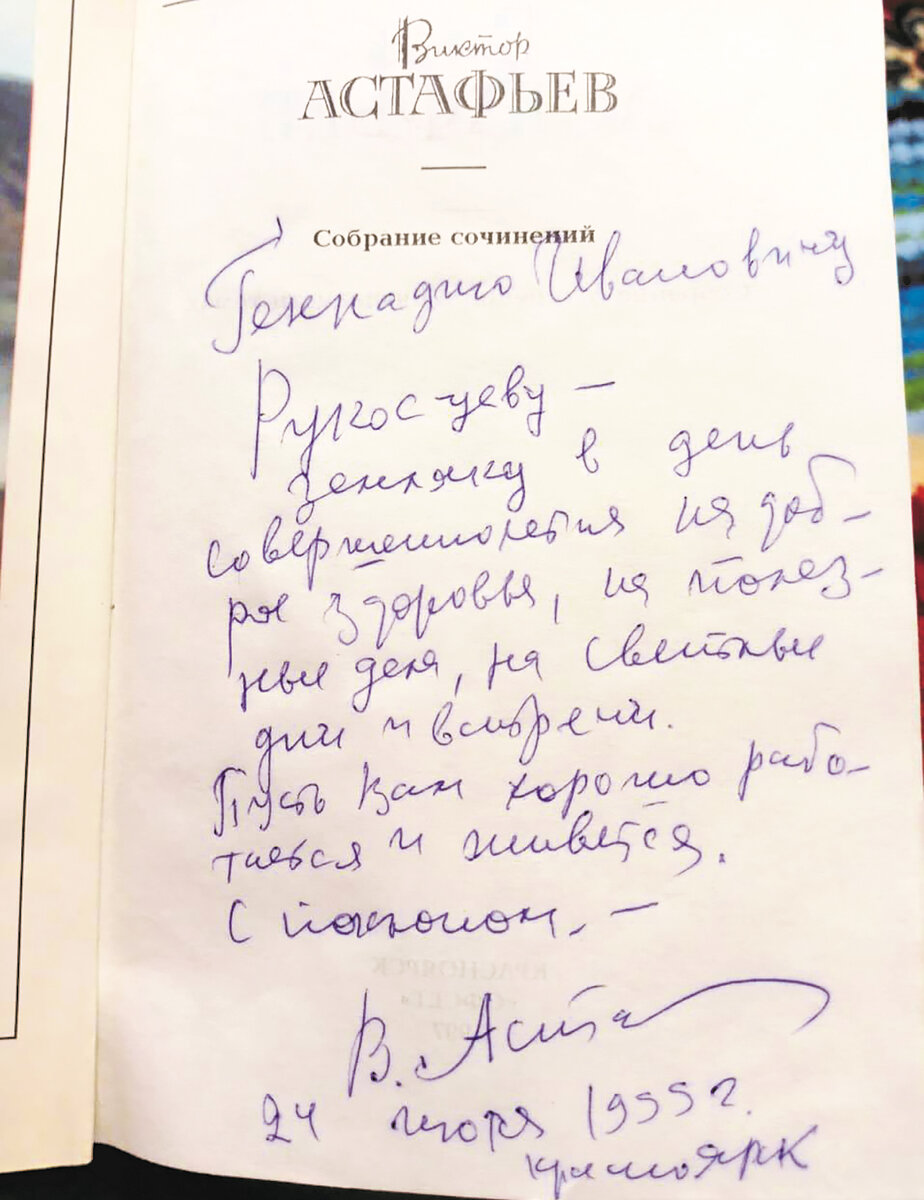 Виктор
АСТАФЬЕВ
Собрание сочинений
Геннадию Ивановичу
Рукосуеву —
земляку в день
совершеннолетия на доб-
рое здоровье, на полез-
ные дела, на светлые
дни и встречи.
Пусть Вам хорошо рабо-
тается и живётся.
С поклоном. —
В. Аста
24 июля 1999 г.
Красноярск
КРАСНОЯРСК
«ОФСЕТ»
1997